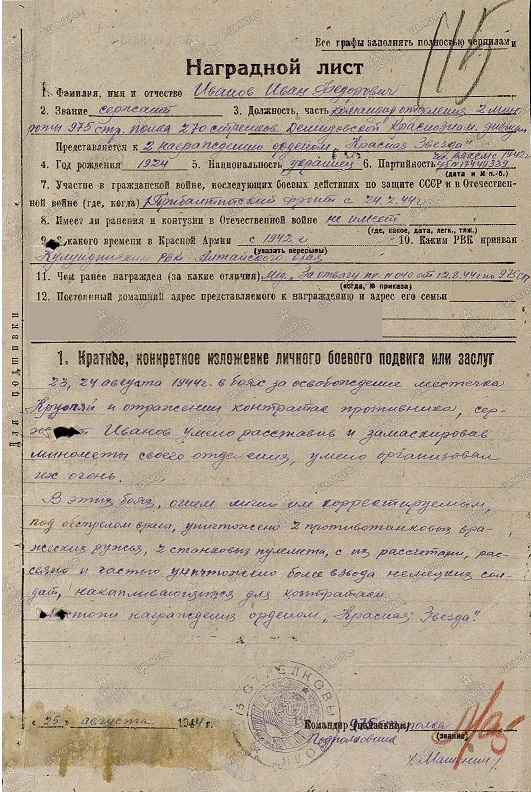 115
Все графы заполнять полностью чернилами
Наградной лист
1. Фамилия, имя и отчество Иванов Иван Федорович
2. Звание сержант 3. Должность, часть командир отделения 2 мин
роты 975 стр. полка 270 стрелков. Демидовской Краснозн. дивизии
Представляется к 2 награждению орденом „Красная Звезда"
4. Год рождения 1924 5. Национальность украинец 6. Партийность
(дата и № п.-б.)
7. Участие в гражданской войне, последующих боевых действиях по защите СССР и в Отечествен-
ной войне (где, когда) Прибалтийский фронт с 24.2.44г.
8. Имеет ли ранения и контузии в Отечественной войне не имеет
(где, какое, дата, легк., тяж.)
9. С какого времени в Красной Армии с 1942 г 10. Каким РВК призван
(указать перерывы)
РВК Алтайского края
11. Чем ранее награжден (за какие отличия) Мед. „За отвагу" пр. по 975 сп
(когда, № приказа)
12. Постоянный домашний адрес представляемого к награждению и адрес его семьи
Для подшивки
1. Краткое, конкретное изложение личного боевого подвига или заслуг
23, 24 августа 1944г. в боях за освобождение местечка
и отражении контратак противника, сер-
жант Иванов умело расставив и замаскировав
минометы своего отделения, умело организовал
их огонь.
В этих боях, огнем лично им корректируемым,
под обстрелом врага, уничтожено 2 противотанковых вра-
жеских ружья, 2 станковых пулемета, с их рассчетами, рас-
сеяно и частью уничтожено более взвода немецких сол-
дат, накапливающихся для контратаки.
Достоин награждения орденом „Красная Звезда".
« 25 » августа 1944 г.
Командир 975 стр. полка
Подполковник
(звание)